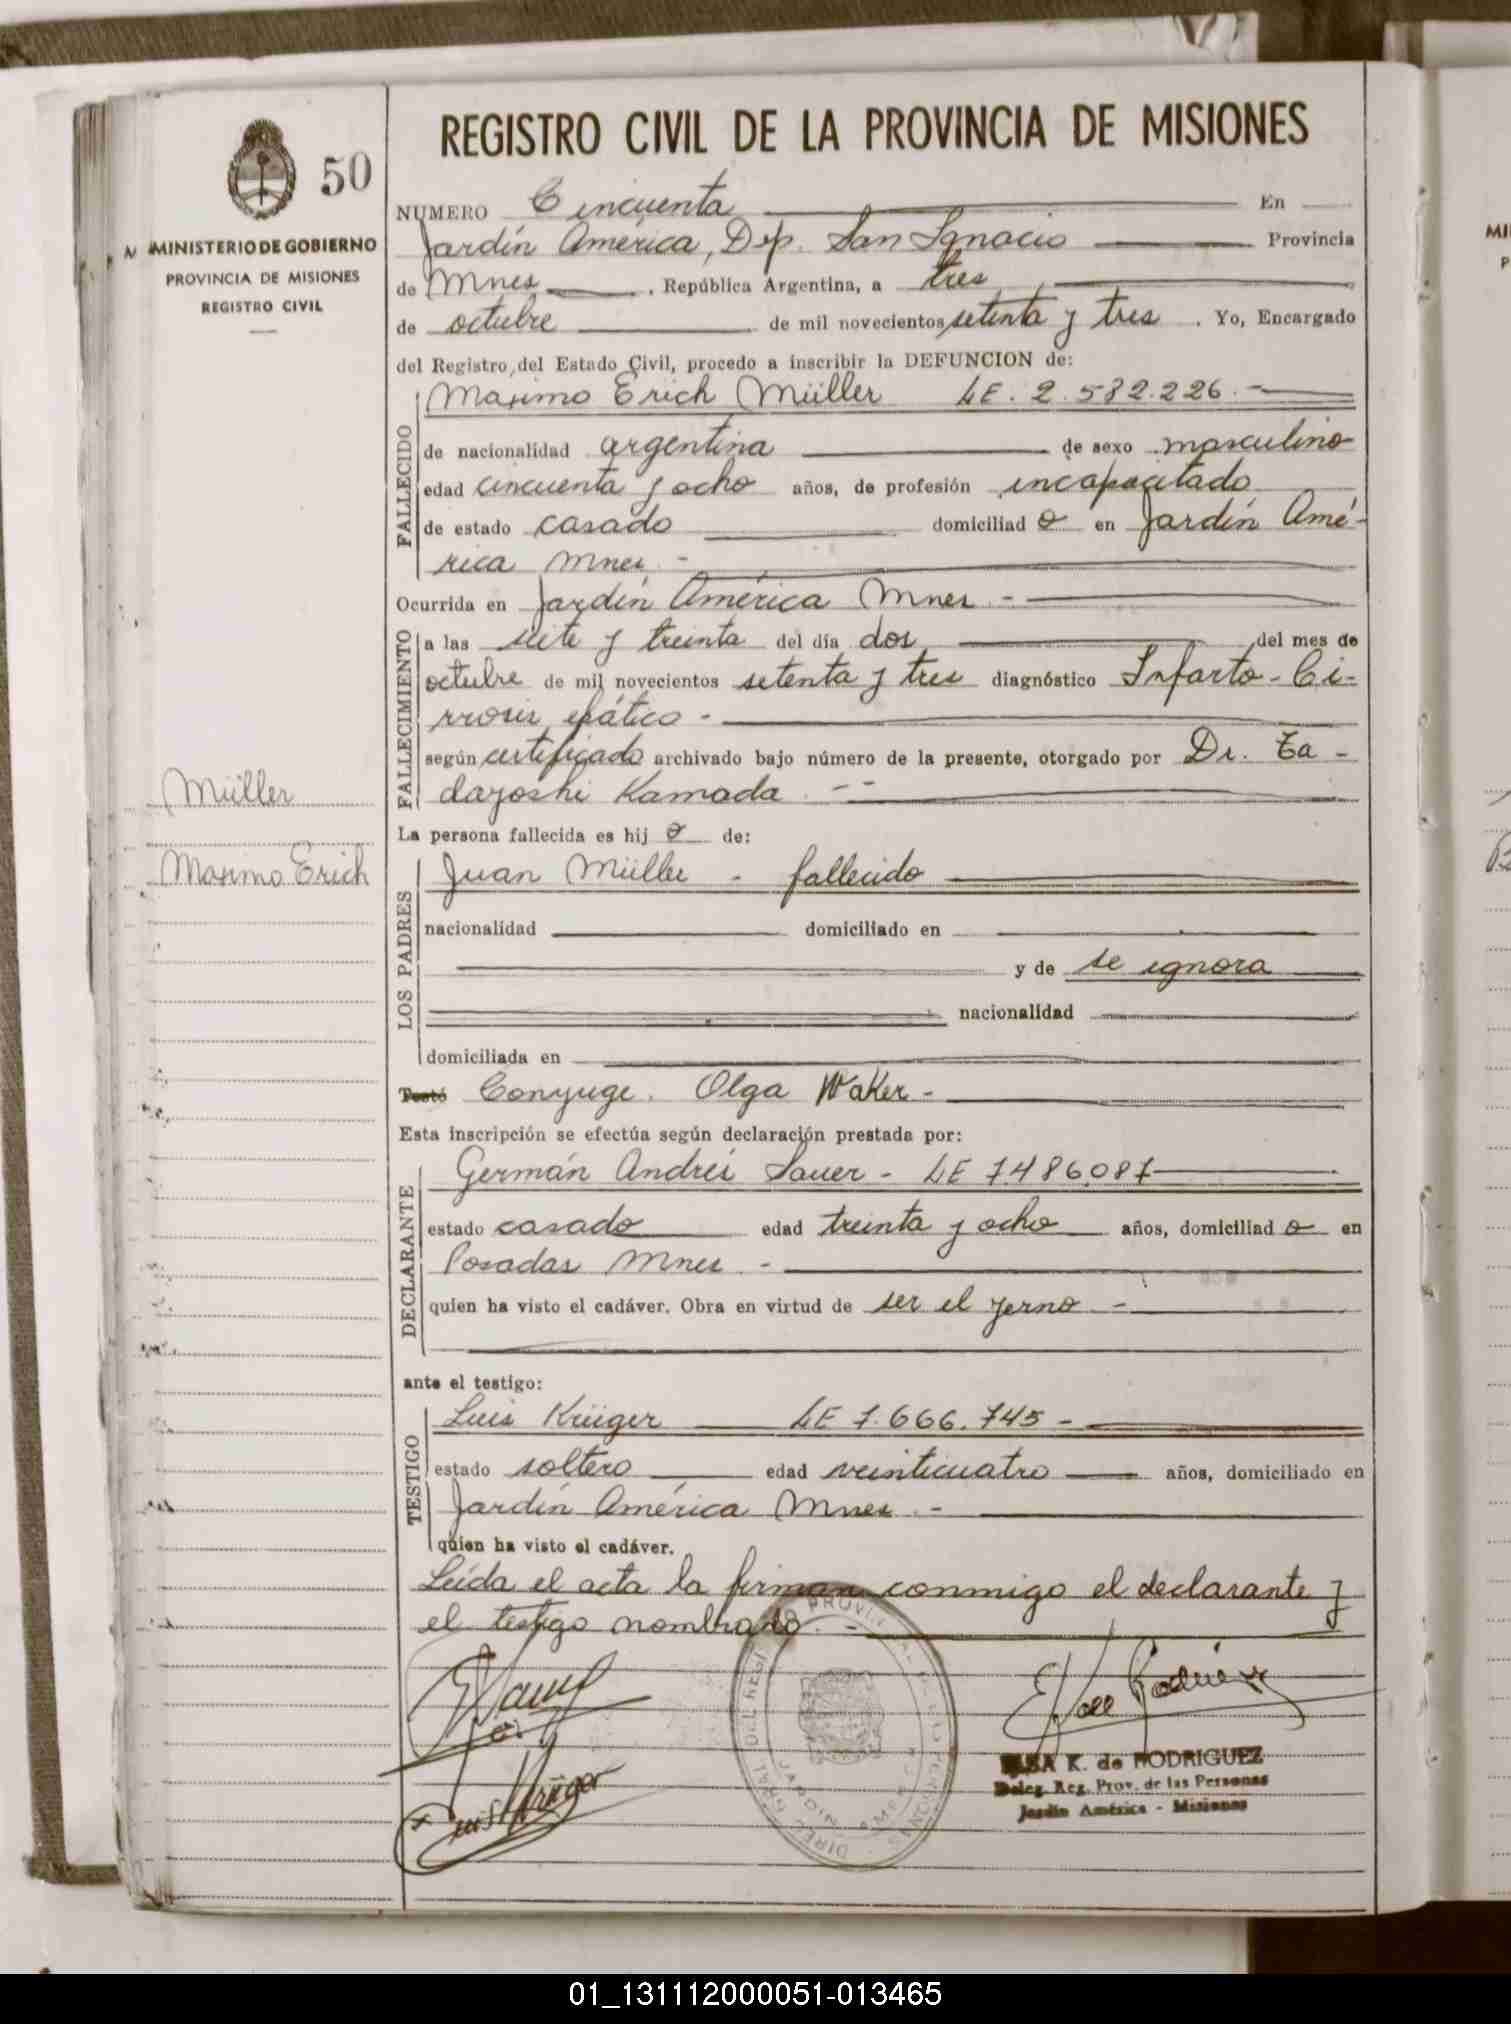 REGISTRO CIVIL DE LA PROVINCIA DE MISIONES
50
MINISTERIO DE GOBIERNO
PROVINCIA DE MISIONES
REGISTRO CIVIL
NUMERO Cincuenta En
Jardín América, Dep. San Ignacio Provincia
de Mnes , República Argentina, a tres
de octubre de mil novecientos setenta y tres . Yo, Encargado
del Registro del Estado Civil, procedo a inscribir la DEFUNCION de:
FALLECIDO
Maximo Erich Müller LE. 2.582.226.-
de nacionalidad argentina de sexo masculino
edad cincuenta y ocho años, de profesión incapacitado
de estado casado domiciliad o en Jardín Amé-
rica Mnes. -
Ocurrida en Jardín América Mnes -
FALLECIMIENTO
a las siete y treinta del día dos del mes de
octubre de mil novecientos setenta y tres diagnóstico Infarto - Ci-
rrosis epático -
según certificado archivado bajo número de la presente, otorgado por Dr. Ta -
dayoshi Kamada. -
Müller
Maximo Erich
La persona fallecida es hij o de:
LOS PADRES
Juan Müller - fallecido
nacionalidad domiciliado en
y de se ignora
nacionalidad
domiciliada en
Testó Conyuge. Olga Waker -
Esta inscripción se efectúa según declaración prestada por:
DECLARANTE
Germán Andrés Sauer - LE 7.486.087
estado casado edad treinta y ocho años, domiciliad o en
Posadas Mnes. -
quien ha visto el cadáver. Obra en virtud de ser el yerno -
ante el testigo:
TESTIGO
Luis Krüger LE 7.666.745 -
estado soltero edad veinticuatro años, domiciliado en
Jardín América Mnes. -
quien ha visto el cadáver.
Leída el acta la firman conmigo el declarante y
el testigo nombrado. -
Luis Krüger
K. de RODRIGUEZ
Deleg. Reg. Prov. de las Personas
Jardín América - Misiones
01_131112000051-013465